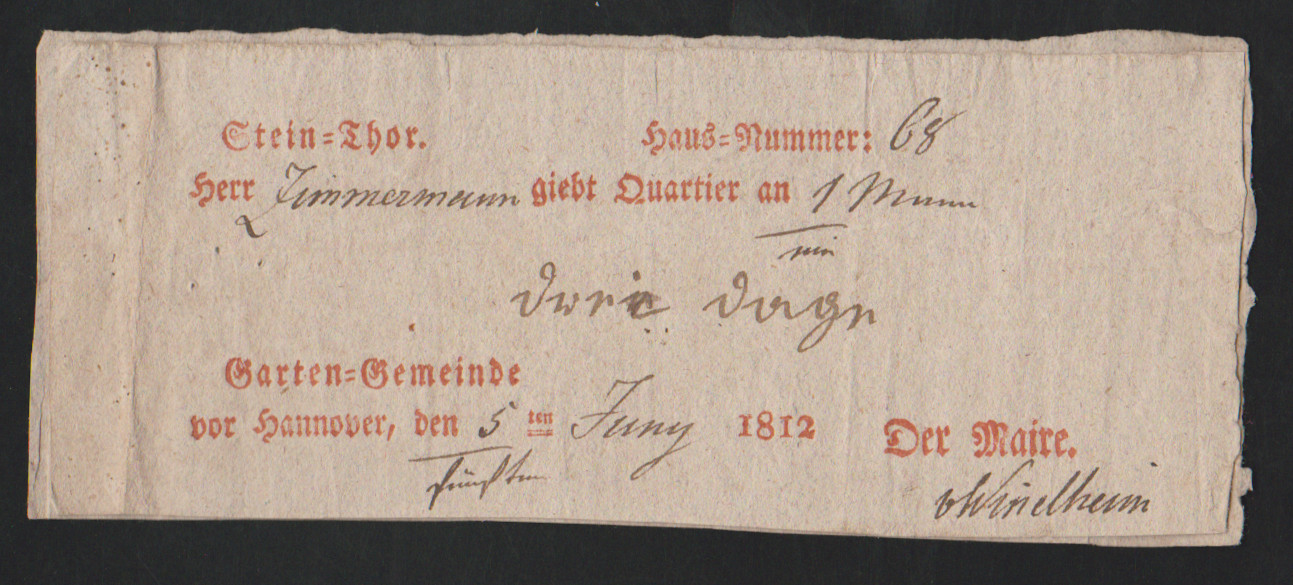 Stein=Thor. Haus=Nummer: 68
Herr Zimmermann giebt Quartier an 1 Mann
ein
drei dage
Garten=Gemeinde
vor Hannover, den 5 ten Juny 1812 Der Maire.
fünften